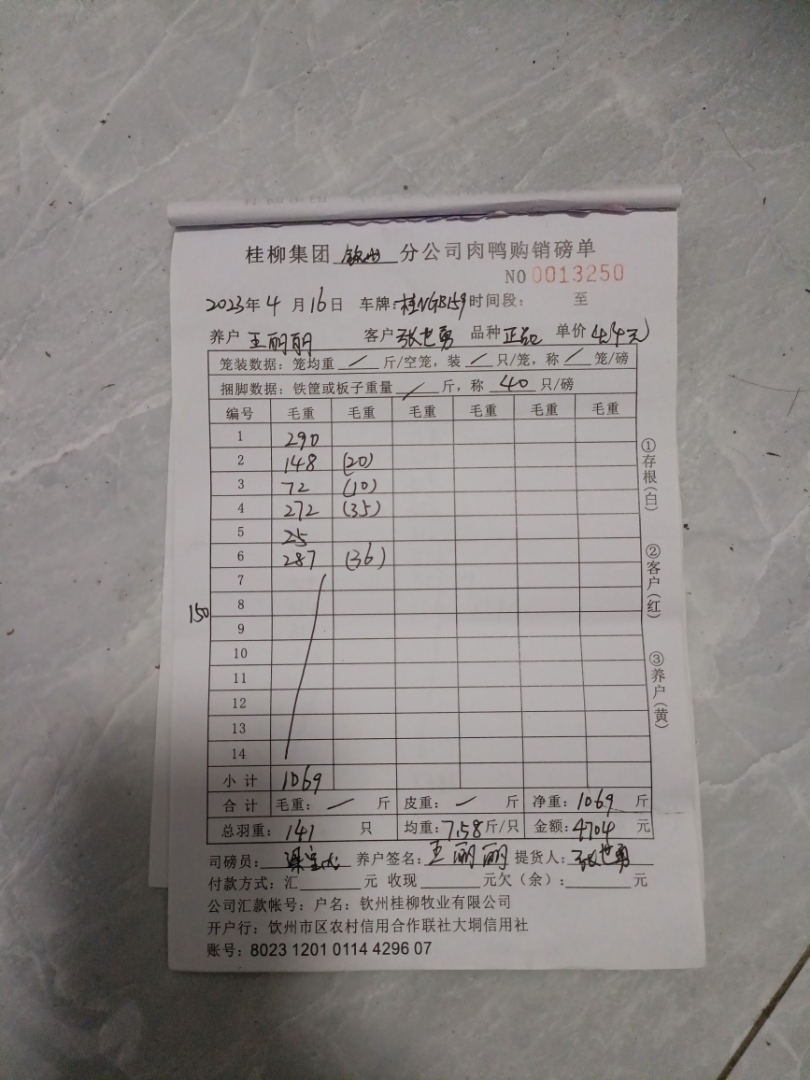 桂柳集团 钦州 分公司肉鸭购销磅单
NO 0013250
2023年 4 月 16日 车牌:桂NGB159 时间段: 至
养户 王丽丽 客户 张世勇 品种 正品 单价 4.4元
笼装数据: 笼均重 / 斤/空笼, 装 / 只/笼, 称 / 笼/磅
捆脚数据: 铁筐或板子重量 / 斤, 称 40 只/磅
编号 毛重 毛重 毛重 毛重 毛重 毛重
1 290
2 148 (20)
3 72 (10)
4 272 (35)
5 25
6 287 (36)
7
8
9
10
11
12
13
14
150
小计 1069
合计 毛重: / 斤 皮重: / 斤 净重: 1069 斤
总羽重: 141 只 均重: 7.58斤/只 金额: 4704 元
司磅员: 养户签名: 王丽丽 提货人: 张世勇
付款方式: 汇 元 收现 元欠(余): 元
公司汇款帐号: 户名: 钦州桂柳牧业有限公司
开户行: 钦州市区农村信用合作联社大垌信用社
账号: 8023 1201 0114 4296 07
①存根(白)
②客户(红)
③养户(黄)